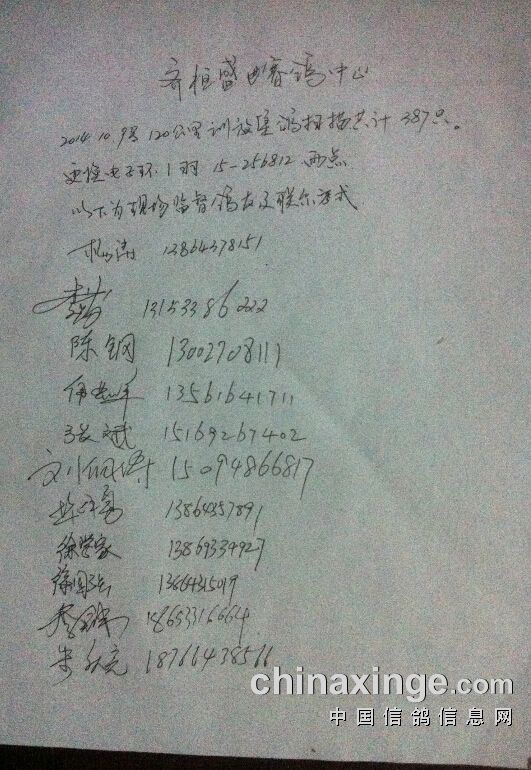 齐桓盛世赛鸽中心
2014.10.9号 120公里训放集鸽扫描共计 387只。
更换电子环1羽 15-256812 两点
以下为现场监督鸽友及联系方式
杨涛 13864378151
李 13153386222
陈钢 13002708111
13561641711
张斌 15169267402
刘 15094866817
1386435789
徐学家 13869334927
徐国 13864315019
18653316664
朱 亮 18766438566
chinaxinge.com
中国信鸽信息网